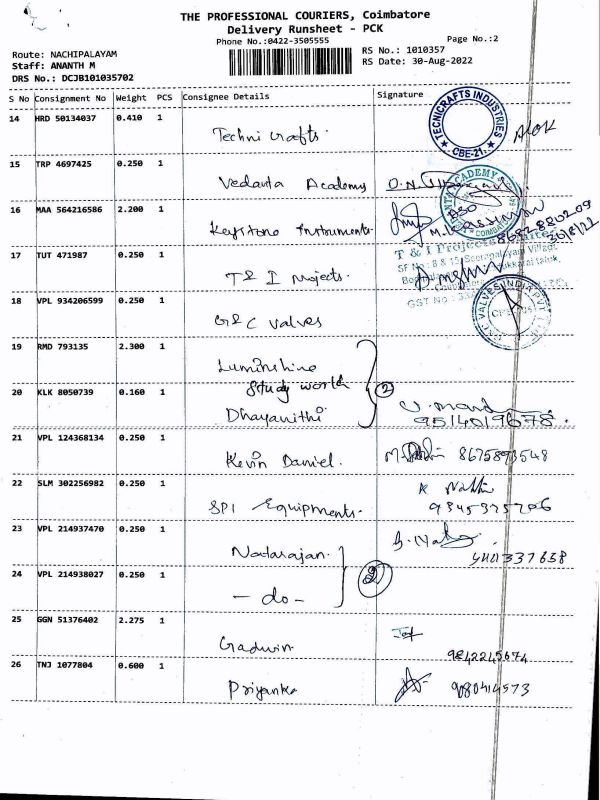 THE PROFESSIONAL COURIERS, Coimbatore
Delivery Runsheet - PCK
Phone No.:0422-3505555
Page No.:2
Route: NACHIPALAYAM
Staff: ANANTH M
DRS No.: DCJB101035702
RS No.: 1010357
RS Date: 30-Aug-2022
S No Consignment No Weight PCS Consignee Details Signature
14 HRD 50134037 0.410 1 Techni Crafts.
TECNICRAFTS INDUSTRIES
CBE-21.
Alok
15 TRP 4697425 0.250 1 Vedanta Academy
16 MAA 564216586 2.200 1 Keystone Instruments.
8682880209
30/8/22
17 TUT 471987 0.250 1 T & I Projects.
T & I Projects
18 VPL 934206599 0.250 1 G&C Valves
VALVES INDIA PVT
19 RMD 793135 2.300 1 Luminshine
Study world
20 KLK 8050739 0.160 1 Dhayanithi
2
9514019678.
21 VPL 124368134 0.250 1 Kevin Daniel.
8675893548
22 SLM 302256982 0.250 1 SPI Equipments.
9345375206
23 VPL 214937470 0.250 1 Natarajan.
24 VPL 214938027 0.250 1 - do -
2
25 GGN 51376402 2.275 1 Gadwin
9842245674
26 TNJ 1077804 0.600 1 Priyanka
9080414573